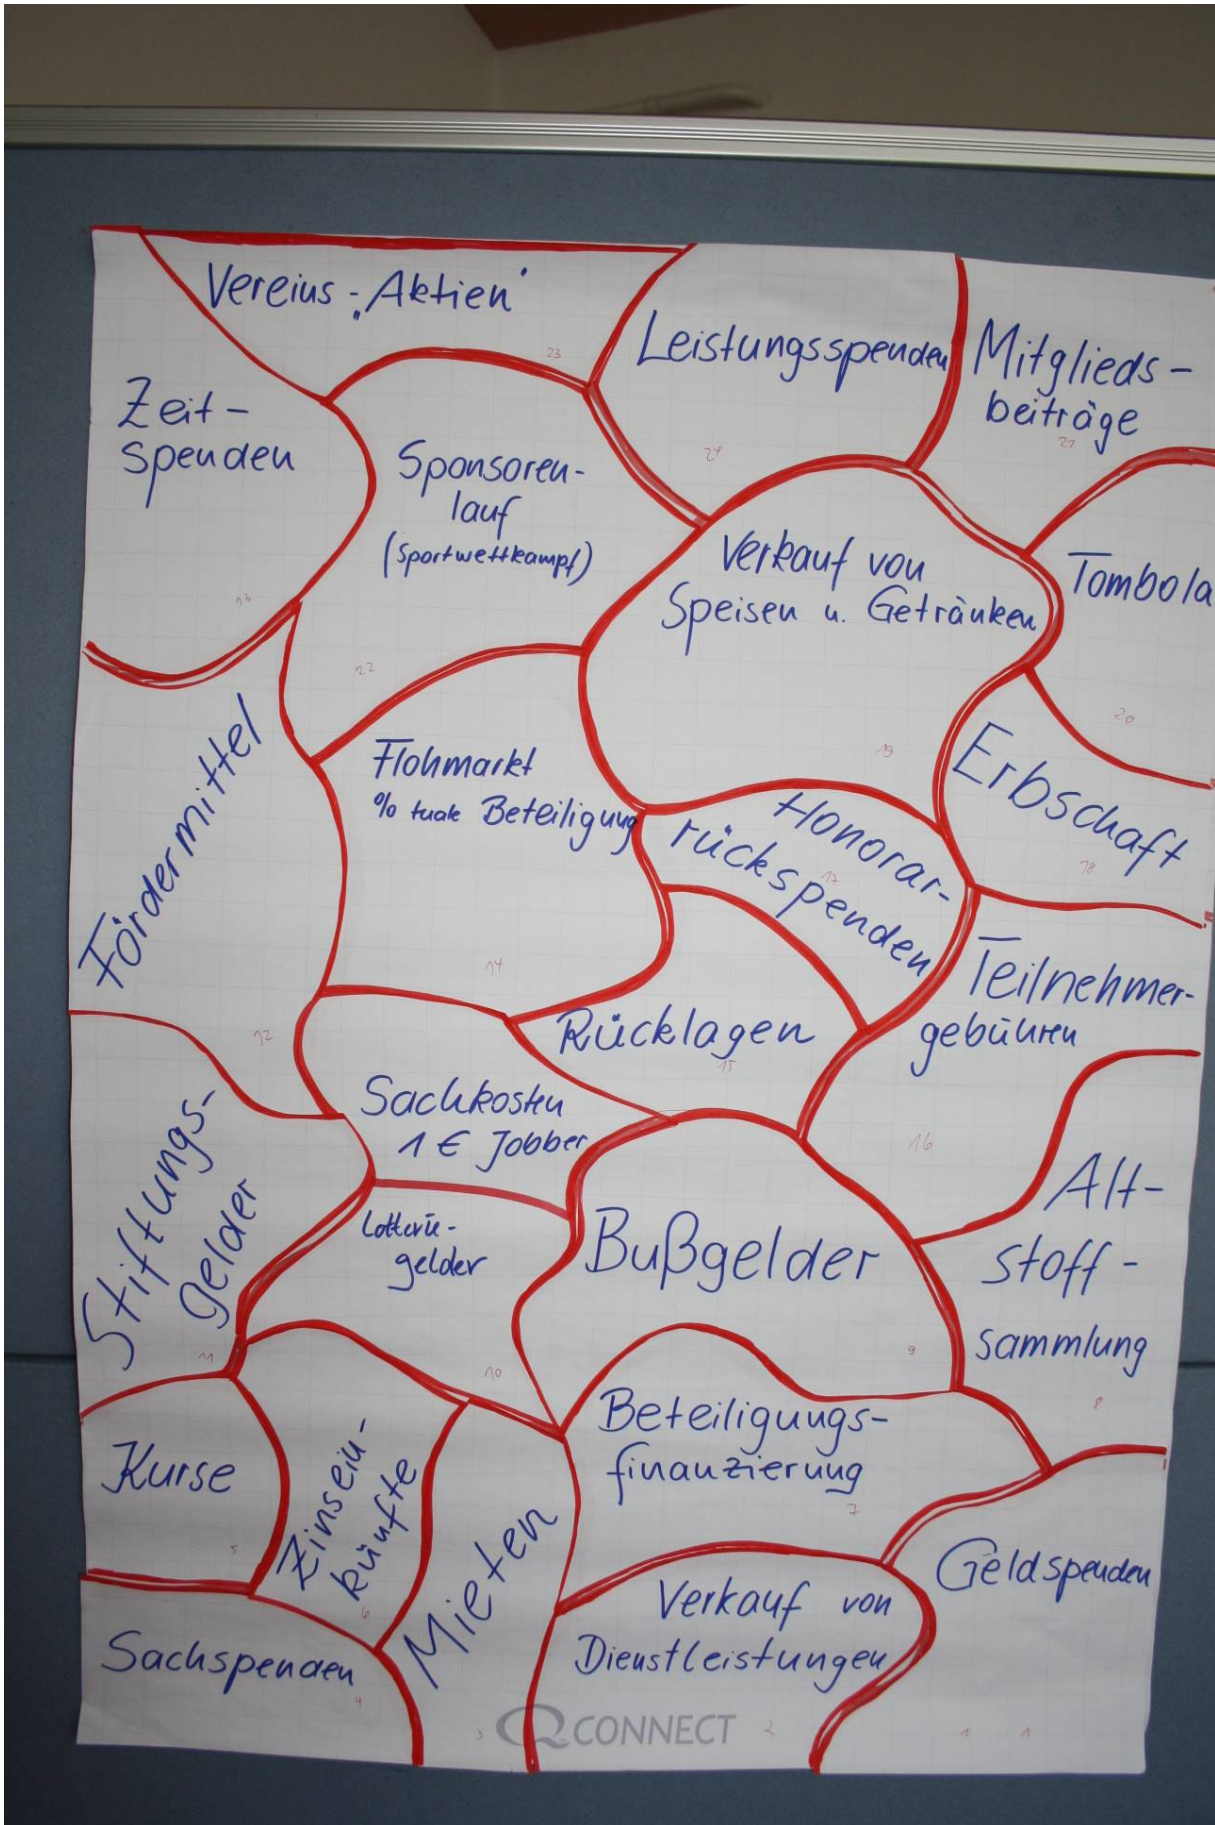 Vereins-„Aktien"
23
Leistungsspenden
24
Mitglieds-
beiträge
21
Zeit-
spenden
13
Sponsoren-
lauf
(Sportwettkampf)
22
Verkauf von
Speisen u. Getränken
19
Tombola
20
Fördermittel
12
Flohmarkt
% tuale Beteiligung
14
Honorar-
rückspenden
17
Erbschaft
18
Rücklagen
15
Teilnehmer-
gebühren
16
Sachkosten
1 € Jobber
Stiftungs-
gelder
11
Lotterie-
gelder
10
Bußgelder
9
Alt-
stoff-
sammlung
8
Kurse
5
Zinsein-
künfte
6
Mieten
3
Beteiligungs-
finanzierung
7
Geldspenden
1 1
Sachspenden
4
Verkauf von
Dienstleistungen
2
Q CONNECT